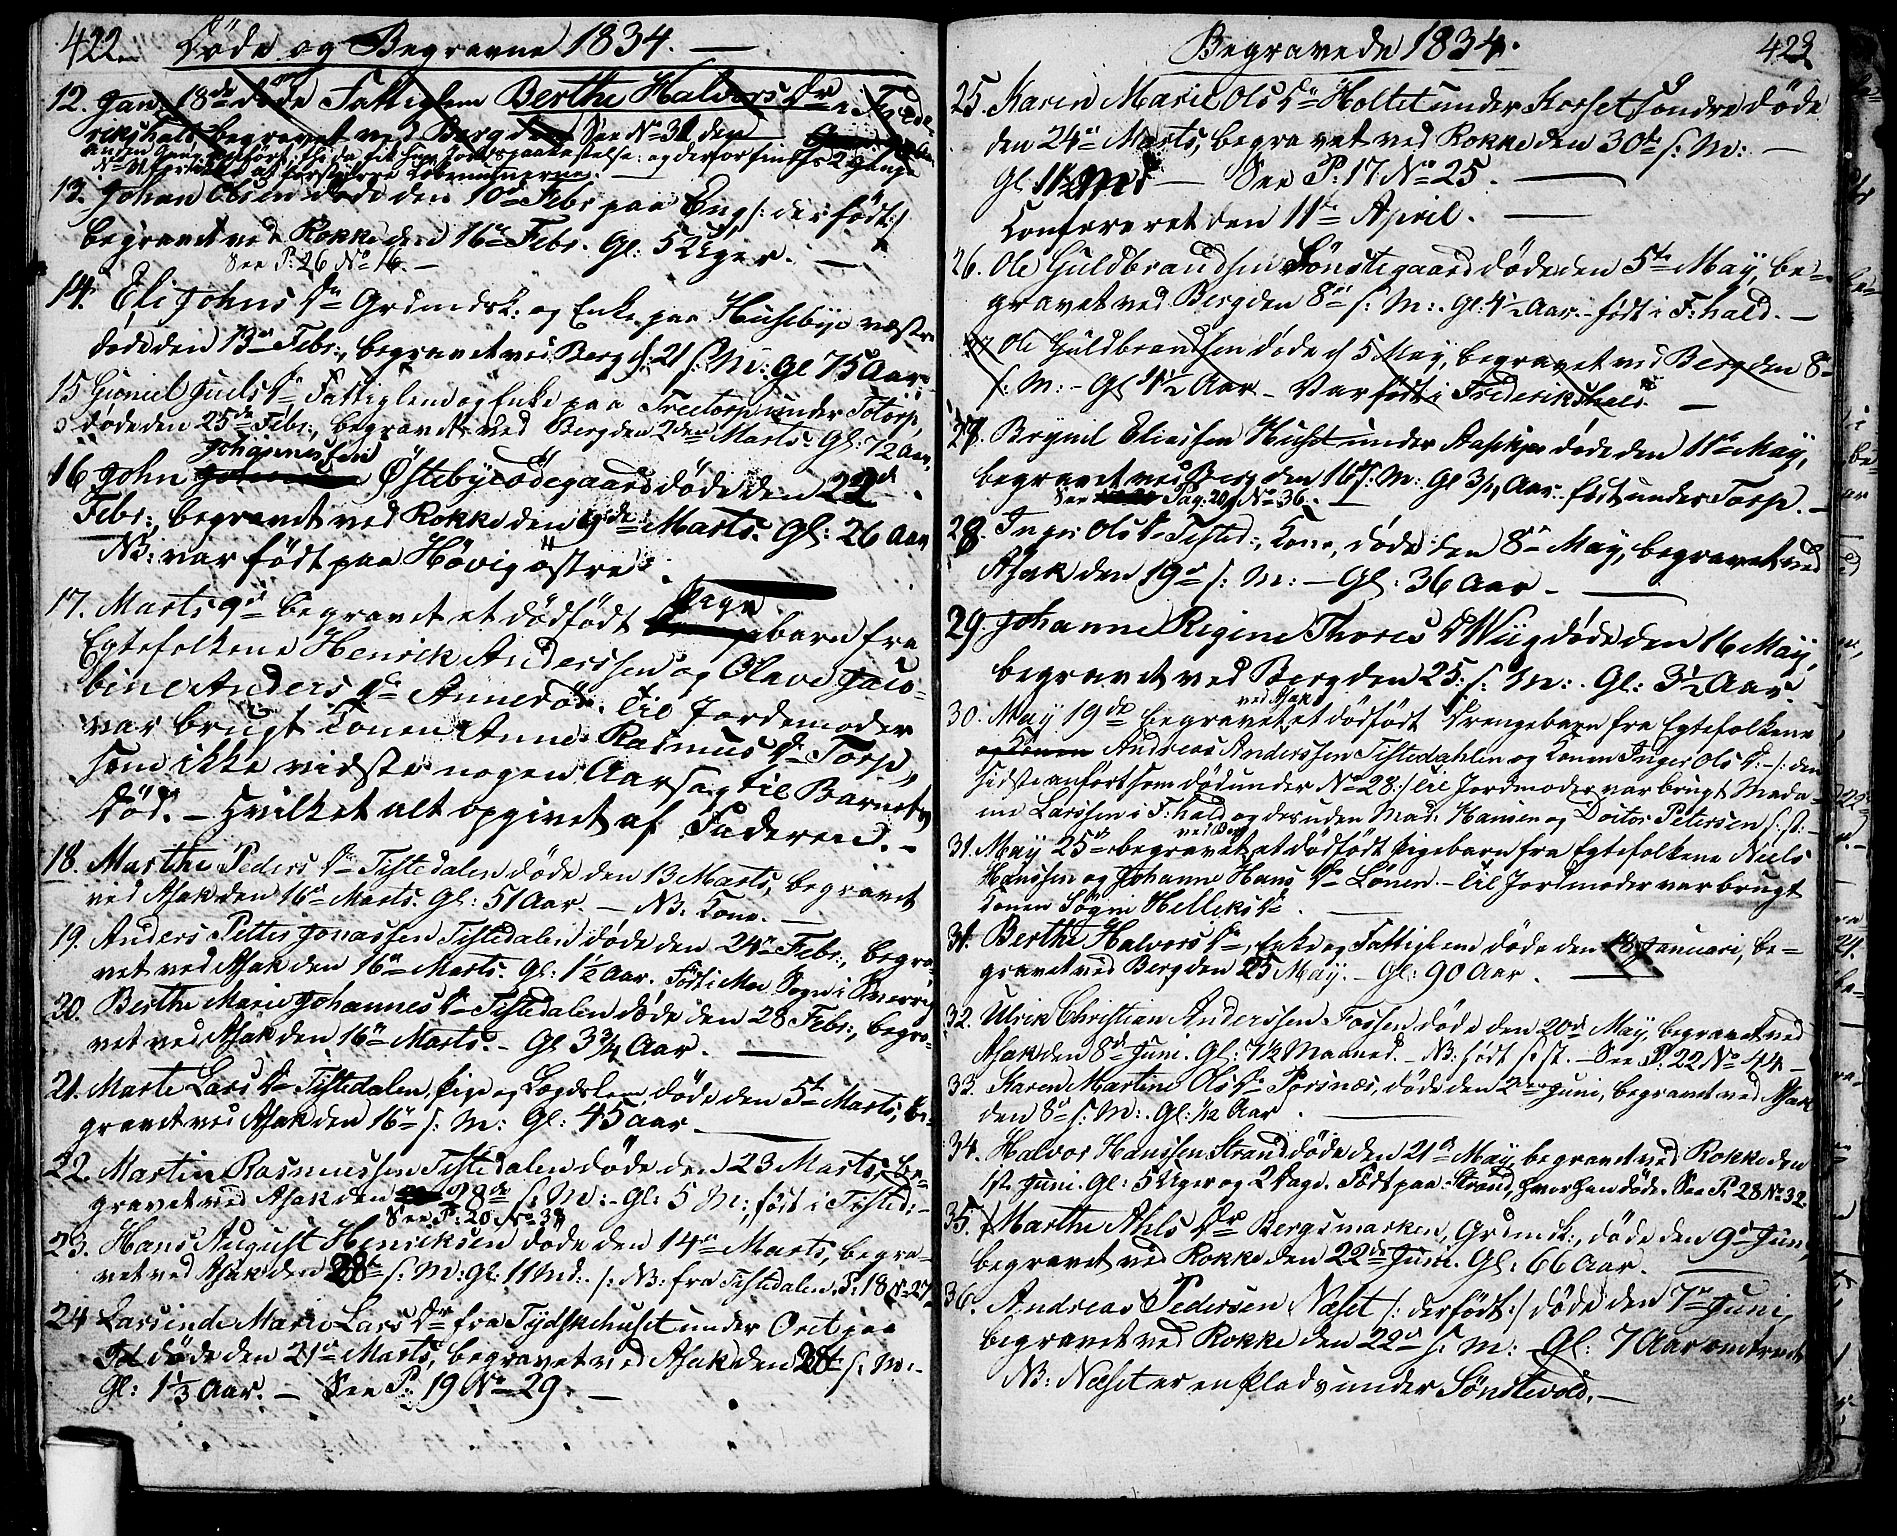 422. Døde og Begravne 1834.
12. Jan: 18de døde Fattiglem Berthe Halvors Dr i Frede-
rikshald begravet ved Berg den See No 31 den
anden Gang anført, thi da fik hun Jordspaakastelse og derfor findes 2 Gange
13. Johan Olsen døde den 10de Febr paa Eng /: der født :/
begravet ved Rokke den 16de Febr. Gl. 5 Uger. —
See P: 26 No 16. —
14. Eli Johns Dr Grundsk: og Enke paa Husebye vestre
døde den 13de Febr:, begravet ved Berg d: 21 s: M: Gl 75 Aar.
15 Gunild Juels Dr Fattiglem og Enke paa Treetorp under Totorp,
døde den 25de Febr:, begravet ved Berg den 2den Marts. Gl: 72 Aar.
Johannessen
16 John Østebyeødegaard døde den 22d
Febr:, begravet ved Rokke den 9de Marts. Gl: 26 Aar
NB: var født paa Høvig østre.
17. Marts 9de begravet et dødfødt Pige barn fra
Egtefolkene Henrik Anderssen og Olave Jaco-
bine Anders Dr Annerød. Til Jordemoder
var brugt Konen Anne Rasmus Dr Torp,
som ikke vidste nogen Aarsag til Barnets
Død. — Hvilket alt opgivet af Faderen. —
18. Marthe Peders Dr Tistedalen døde den 13 Marts, begravet
ved Asak den 16de Marts. Gl: 51 Aar. — NB. Kone. —
19. Anders Petter Jonassen Tistedalen døde den 24de Febr:, begra-
vet ved Asak den 16de Marts. Gl: 1½ Aar. Født i Moe Sogn i Sverrig
20. Berthe Marie Johannes Dr Tistedalen døde den 28 Febr:, begra-
vet ved Asak den 16de Marts. — Gl 3¾ Aar. —
21. Marte Lars Dr Tistedalen, Pige og Lægdslem, døde den 5te Marts, be-
gravet ved Asak den 16de s: M: Gl: 45 Aar. —
22. Martin Rasmussen Tistedalen døde den 23 Marts, be-
gravet ved Asak den 28de s: M: — Gl: 5 M:, født i Tisted: —
See P: 20 No 38
23. Hans August Henriksen døde den 14de Marts, begra-
vet ved Asak den 28de s: M: Gl: 11 Md: s: NB: fra Tistedalen. P: 18 No 27
24 Larsinde Marie Lars Dr fra Tydskehuset under Oret paa
Id døde den 21de Marts, begravet ved Asak den 28de s: M: —
Gl: 1⅓ Aar. — See P: 19 No 29. —
Begravede 1834. 423
25. Karen Marie Ols Dr Holtet under Korset søndre døde
den 24de Marts, begravet ved Rokke den 30te s: M: —
Gl 11½ Md — See P: 17 No 25. —
Confereret den 11te April. —
26. Ole Guldbrandsen Sønstegaard døde den 5te May, be-
gravet ved Berg den 8de s: M: . Gl: 4½ Aar. født i F: hald. —
27 Ole Guldbrandsen døde d 5 May, begravet ved Berg den 8-
s: M: — Gl 4½ Aar — Var født i Frederikshald. —
27. Brynil Eliassen Huset under døde den 11te May,
begravet ved Berg den 16de s: M: Gl ¾ Aar. født under Torp. —
See Pag. 20, No 36. —
28. Inger Ols Dr Tisted:, Kone, døde den 8de May, begravet ved
Asak den 19de s: M: — Gl: 36 Aar. —
29. Johanne Regine Thores D Wiig døde den 16 May,
begravet ved Berg den 25. s: M: . Gl: 3½ Aar.
ved Asak
30. May 19de begravet et dødfødt Drengebarn fra Egtefolkene
og Konen Andreas Anderssen Tistedahlen og Konen Inger Ols D. — /: den
sidste anført som død under No 28 :/ til Jordmoder var brugt Mada-
me Larssen i F: hald og desuden Mad: Hansen og Doctor Petersen s: st: —
ved Berg
31. May 25de begravet et dødfødt Pigebarn fra Egtefolkene Niels
Hanssen og Johanne Hans Dr Lønen. — Til Jordmoder var brugt
Konen Sogni Helleks Dr . —
31. Berthe Halvors Dr, Enke og Fattiglem døde den 18 Januari, be-
gravet ved Berg den 25 May. — Gl: 90 Aar. —
32. Ulrik Christian Anderssen Fossen døde den 20de May, begravet ved
Asak den 8de Juni. Gl: 7½ Maaned. — NB: født s: st. — See P: 22 No 44 —
33. Karen Martine Ols Dr Porsnæs, døde den 2den Juni, begravet ved Asak
den 8de s: M: . Gl: ½ Aar. —
34. Halvor Hanssen Strand døde den 21de May, begravet ved Rokke den
1ste Juni. Gl: 5 Uger og 2 Dage. Født paa Strand, hvor han døde. See P. 28 No 32
35. Marthe Abels Dr Bergsmarken, Grundk:, døde den 9de Juni,
begravet ved Rokke den 22de Juni. Gl: 66 Aar. —
36. Andreas Pedersen Næset /: der født :/ døde den 7de Juni,
begravet ved Rokke den 22de s: M: — Gl: 7 Aar omtrent
NB: Næset er en Plads under Sønstevold. —